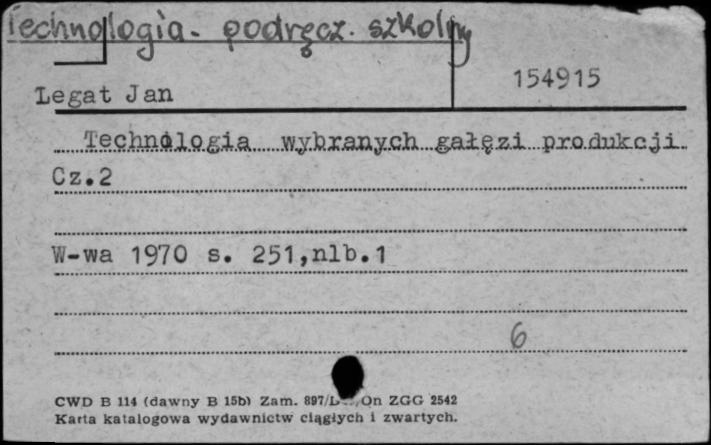 Technologia - podręcz. szkolny
154915
Legat Jan
Technologia wybranych gałęzi produkcji
Cz.2
W-wa 1970 s. 251,nlb.1
6
CWD B 114 (dawny B 15b) Zam. 897/ On ZGG 2542
Karta katalogowa wydawnictw ciągłych i zwartych.